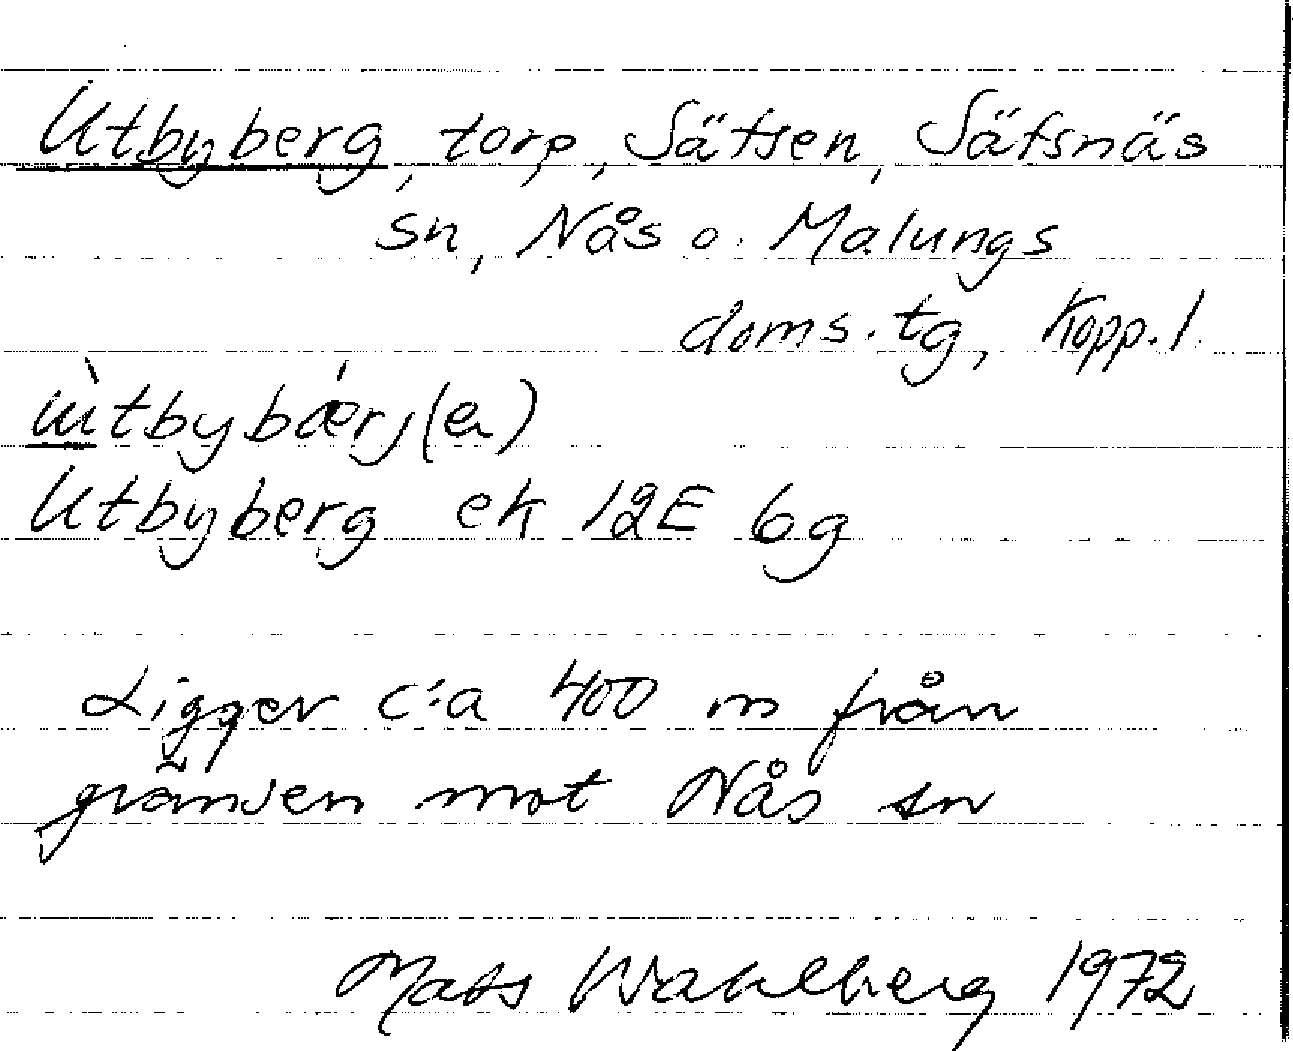 Utbyberg, torp, Sätsen, Sätsnäs
sn, Nås o. Malungs
doms. tg, Kopp. l.
ùtbybǽrj(a)
Utbyberg ek 12E 6g
Ligger c:a 400 m från
gränsen mot Nås sn
Mats Wahlberg 1972